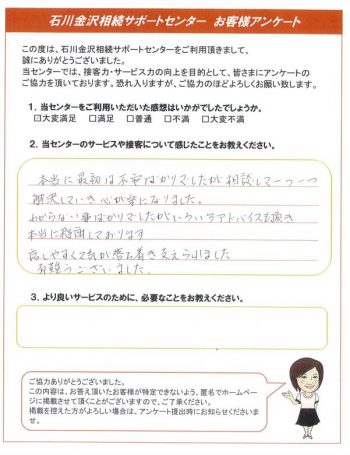 石川金沢相続サポートセンター お客様アンケート
この度は、石川金沢相続サポートセンターをご利用頂きまして、
誠にありがとうございました。
当センターでは、接客力・サービス力の向上を目的として、皆さまにアンケートの
ご協力を頂いております。恐れ入りますが、ご協力のほどよろしくお願い致します。
1. 当センターをご利用いただいた感想はいかがでしたでしょうか。
☑大変満足 □満足 □普通 □不満 □大変不満
2. 当センターのサービスや接客について感じたことをお教えください。
本当に最初は不安ばかりでしたが相談して一つ一つ
解決していき心が楽になりました。
わからない事ばかりでしたがいろいろアドバイスも頂き
本当に感謝しております
話しやすくて気が落ち着き支えられました
有難うございました。
3. より良いサービスのために、必要なことをお教えください。
ご協力ありがとうございました。
この内容は、お答え頂いたお客様が特定できないよう、匿名でホームペー
ジに掲載させて頂くことがございますので、ご了承ください。
掲載を控えた方がよろしい場合は、アンケート提出時にお知らせくださいま
せ。